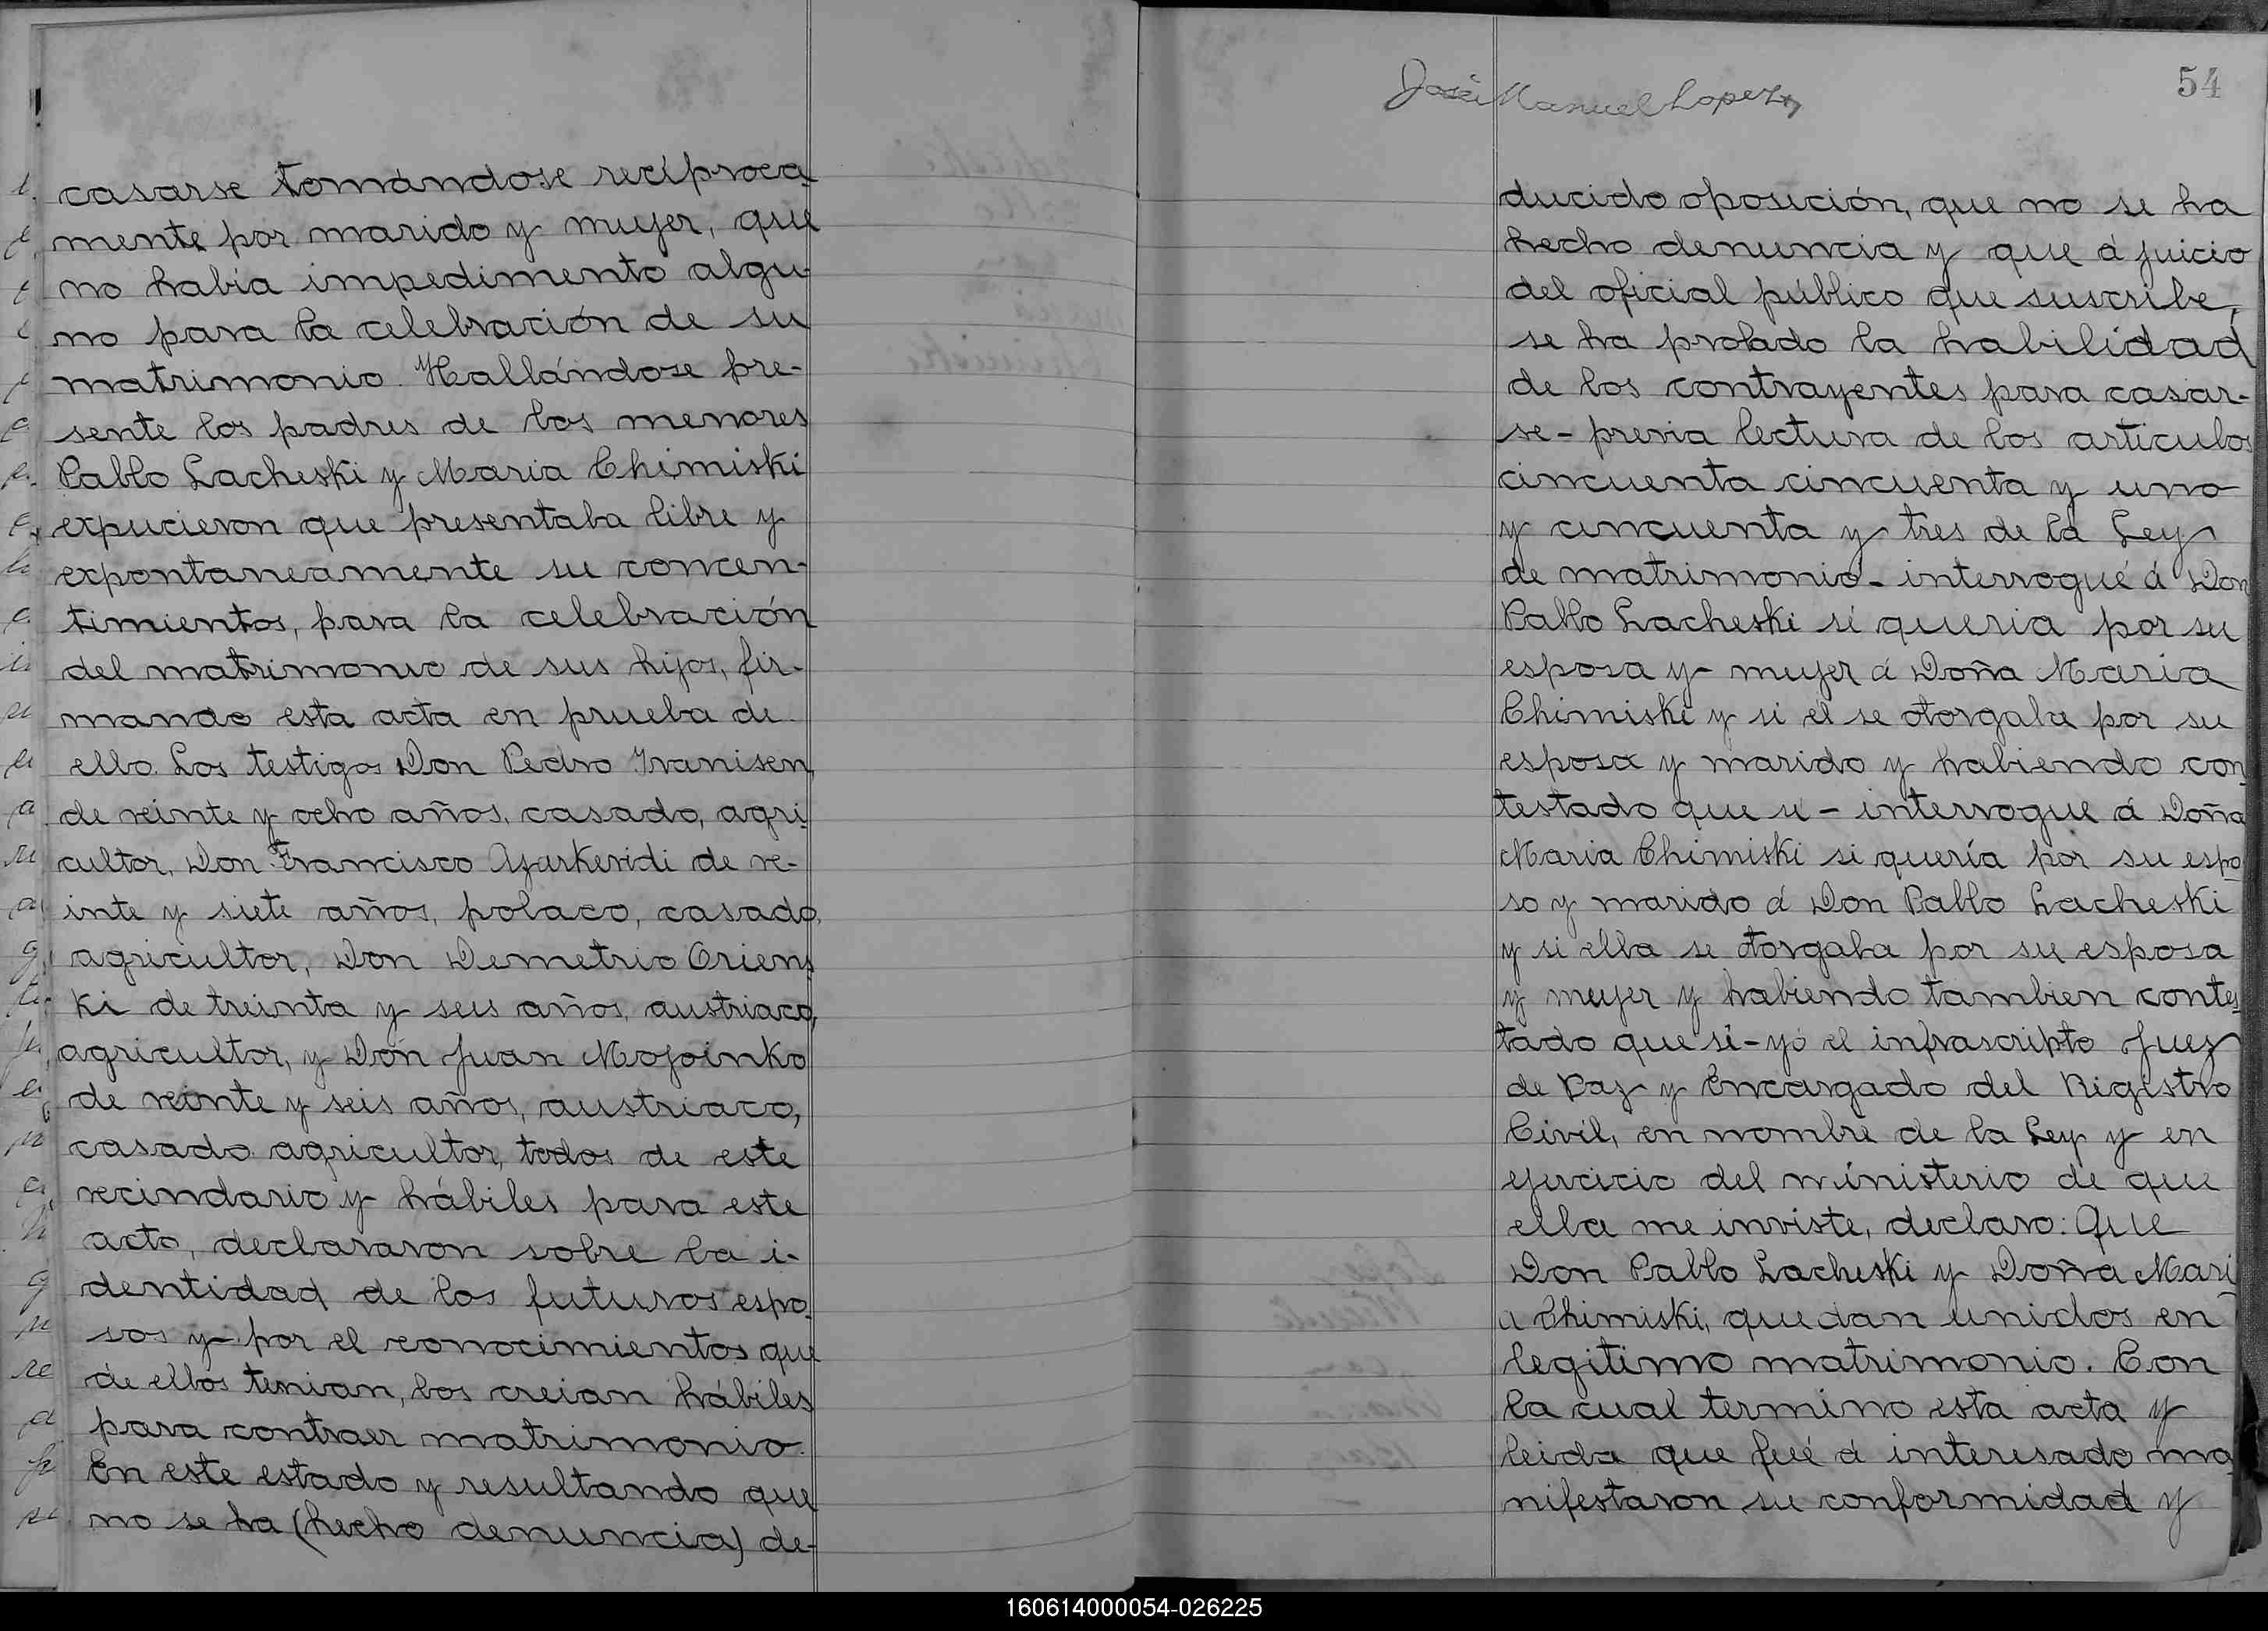 casarse tomándose recíproca
mente por marido y mujer, que
no había impedimento algu
no para la celebración de su
matrimonio. Hallándose pre-
sente los padres de los menores
Pablo Lacheski y Maria Chimiski
expucieron que presentaba libre y
expontaneamente su concen-
timientos, para la celebración
del matrimonio de sus hijos, fir-
mando esta acta en prueba de
ello. Los testigos Don Pedro Ivanisen,
de veinte y ocho años, casado, agri
cultor, Don Francisco de ve-
inte y siete años, polaco, casado,
agricultor, Don Demetrio Oriens
ki de treinta y seis años, austriaco,
agricultor, y Don Juan Mojoinko
de veinte y seis años, austriaco,
casado agricultor, todos de este
vecindario y hábiles para este
acto, declararon sobre la i-
dentidad de los futuros espo
sos y por el conocimientos que
de ellos tenian, los creian hábiles
para contraer matrimonio.
En este estado y resultando que
no se ha (hecho denuncia) de-
José Manuel Lopez
54
ducido oposición, que no se ha
hecho denuncia y que á juicio
del oficial público que suscribe,
se ha probado la habilidad
de los contrayentes para casar-
se - previa lectura de los articulos
cincuenta cincuenta y uno
y cincuenta y tres de la Ley
de matrimonio - interrogué á Don
Pablo Lacheski si queria por su
esposa y mujer á Doña Maria
Chimiski y si él se otorgaba por su
esposa y marido y habiendo con
testado que si - interrogue á Doña
Maria Chimiski si quería por su espo
so y marido á Don Pablo Lacheski
y si ella se otorgaba por su esposa
y mujer y habiendo tambien contes
tado que si - yo el infrascripto Juez
de Paz y Encargado del Registro
Civil, en nombre de la Ley y en
ejercicio del ministerio de que
ella me inviste, declaro: Que
Don Pablo Lacheski y Doña Mari
a Chimiski, quedan unidos en
legitimo matrimonio. Con
la cual termino esta acta y
leida que fué á interesado ma
nifestaron su conformidad y
160614000054-026225